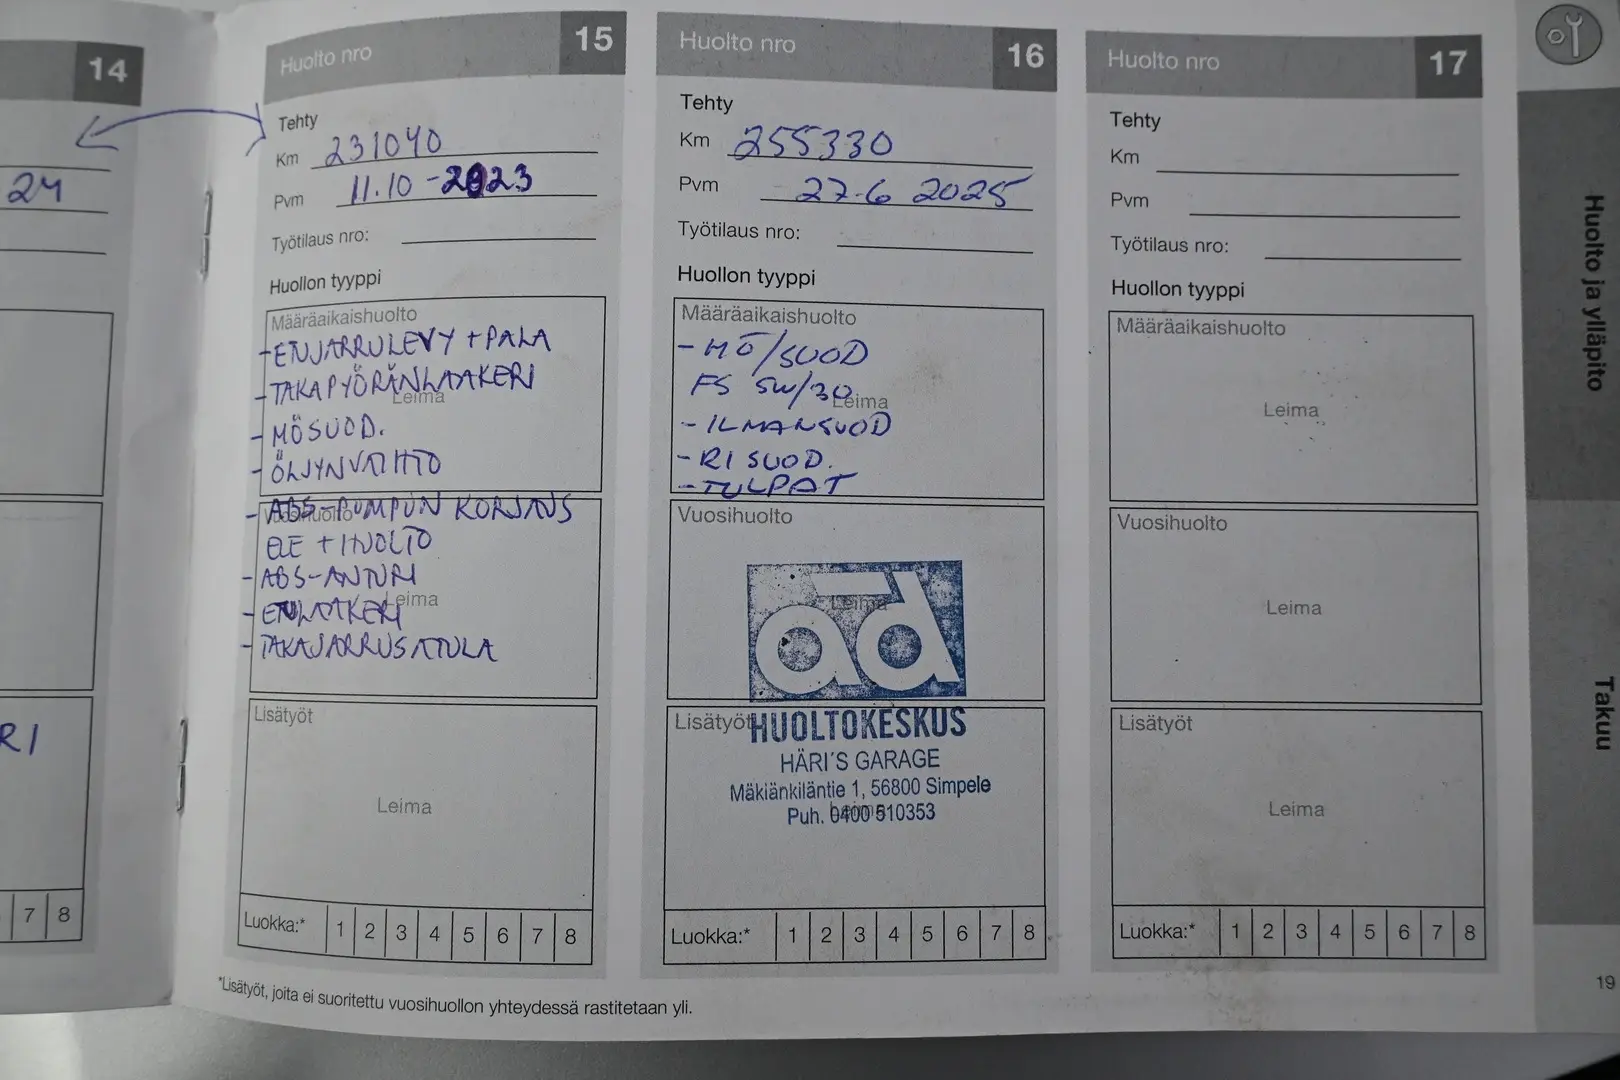 14
24
RI
7 8
Huolto nro 15
Tehty
Km 231040
Pvm 11.10-2023
Työtilaus nro:
Huollon tyyppi
Määräaikaishuolto
- ETUJARRULEVY + PALA
- TAKAPYÖRÄNLAAKERI
Leima
- MÖSUOD.
- ÖLJYNVAIHTO
Vuosihuolto
- ABS-PUMPUN KORJAUS
ELE + HUOLTO
- ABS-ANTURI
Leima
- ETULAAKERI
- TAKAJARRUSATULA
Lisätyöt
Leima
Luokka:* 1 2 3 4 5 6 7 8
*Lisätyöt, joita ei suoritettu vuosihuollon yhteydessä rastitetaan yli.
Huolto nro 16
Tehty
Km 255330
Pvm 27.6 2025
Työtilaus nro:
Huollon tyyppi
Määräaikaishuolto
- MÖ/SUOD
FS 5W/30
Leima
- ILMANSUOD
- RI SUOD.
- TULPAT
Vuosihuolto
Leima
ad
Lisätyöt
HUOLTOKESKUS
HÄRI'S GARAGE
Mäkiänkiläntie 1, 56800 Simpele
Puh. 0400 510353
Leima
Luokka:* 1 2 3 4 5 6 7 8
Huolto nro 17
Tehty
Km
Pvm
Työtilaus nro:
Huollon tyyppi
Määräaikaishuolto
Leima
Vuosihuolto
Leima
Lisätyöt
Leima
Luokka:* 1 2 3 4 5 6 7 8
Huolto ja ylläpito
Takuu
19